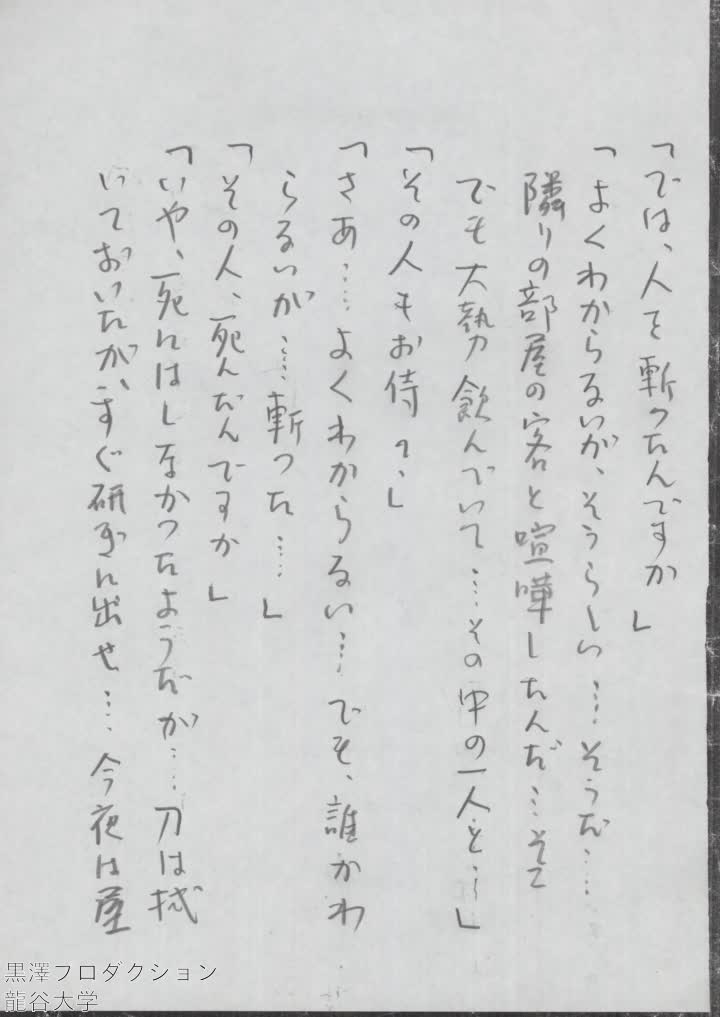 「では、人を斬ったんですか」
「よくわからないが、そうらしい……そうだ……
隣りの部屋の客と喧嘩したんだ…そこ
でも大勢飲んでいて……その中の一人と…」
「その人もお侍？」
「さあ……よくわからない……でも、誰かわ
らないが……斬った……」
「その人、死んだんですか」
「いや、死にはしなかったようだが……刀は拭
いておいたが、すぐ研ぎに出せ……今夜は屋
黒澤プロダクション
龍谷大学